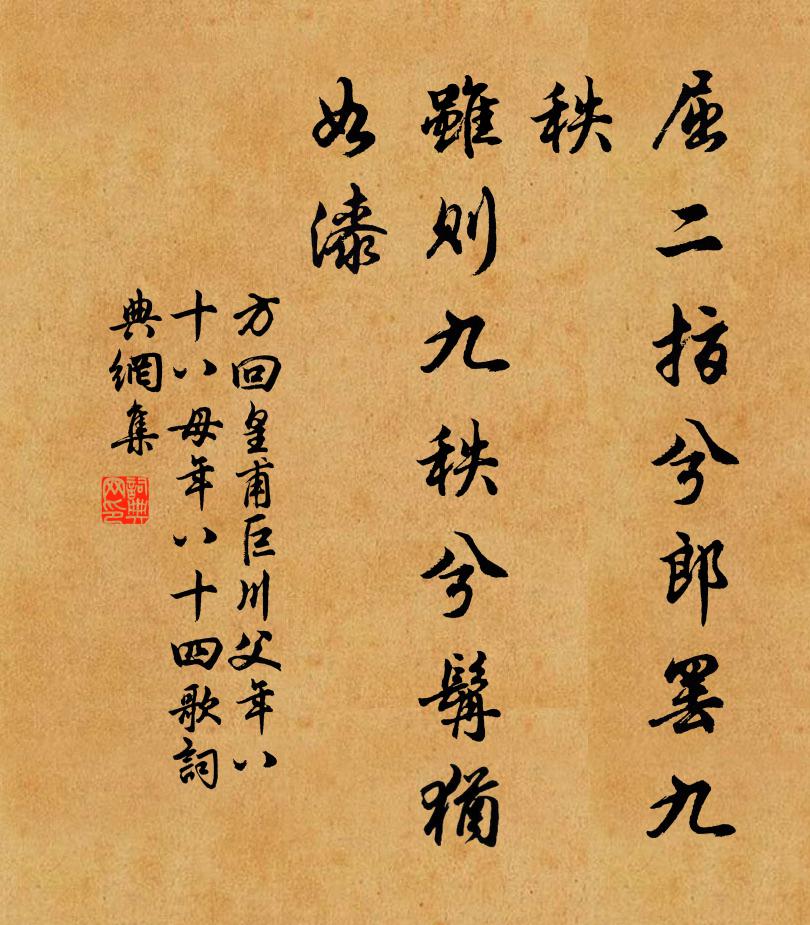 屈二指兮郎罢九
秩
雖則九秩兮鬅猶
如漆
方回皇甫巨川父年八
十八母年八十四歌詞
典網集
詞典
网印